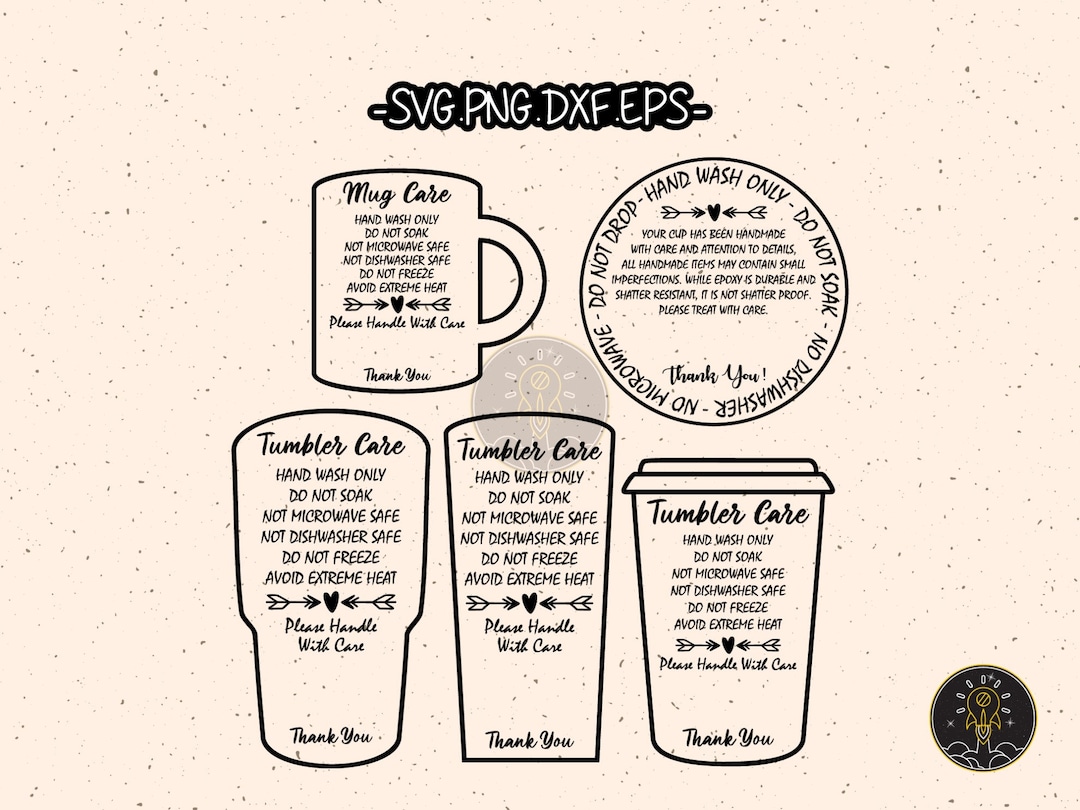 -SVG.PNG.DXF.EPS-
Mug Care
HAND WASH ONLY
DO NOT SOAK
NOT MICROWAVE SAFE
NOT DISHWASHER SAFE
DO NOT FREEZE
AVOID EXTREME HEAT
Please Handle With Care
Thank You
HAND WASH ONLY - DO NOT SOAK - NO DISHWASHER - NO MICROWAVE - DO NOT DROP -
YOUR CUP HAS BEEN HANDMADE
WITH CARE AND ATTENTION TO DETAILS,
ALL HANDMADE ITEMS MAY CONTAIN SMALL
IMPERFECTIONS. WHILE EPOXY IS DURABLE AND
SHATTER RESISTANT, IT IS NOT SHATTER PROOF.
PLEASE TREAT WITH CARE.
Thank You!
Tumbler Care
HAND WASH ONLY
DO NOT SOAK
NOT MICROWAVE SAFE
NOT DISHWASHER SAFE
DO NOT FREEZE
AVOID EXTREME HEAT
Please Handle
With Care
Thank You
Tumbler Care
HAND WASH ONLY
DO NOT SOAK
NOT MICROWAVE SAFE
NOT DISHWASHER SAFE
DO NOT FREEZE
AVOID EXTREME HEAT
Please Handle
With Care
Thank You
Tumbler Care
HAND WASH ONLY
DO NOT SOAK
NOT MICROWAVE SAFE
NOT DISHWASHER SAFE
DO NOT FREEZE
AVOID EXTREME HEAT
Please Handle With Care
Thank You